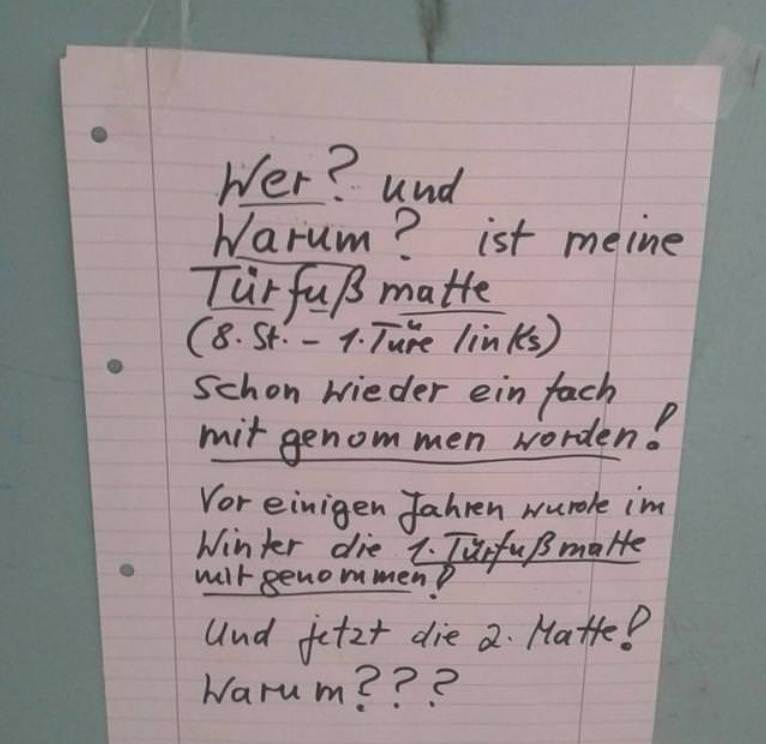 Wer? und
Warum? ist meine
Türfußmatte
(8. St. - 1. Türe links)
schon wieder einfach
mitgenommen worden!
Vor einigen Jahren wurde im
Winter die 1. Türfußmatte
mitgenommen!
Und jetzt die 2. Matte!
Warum???